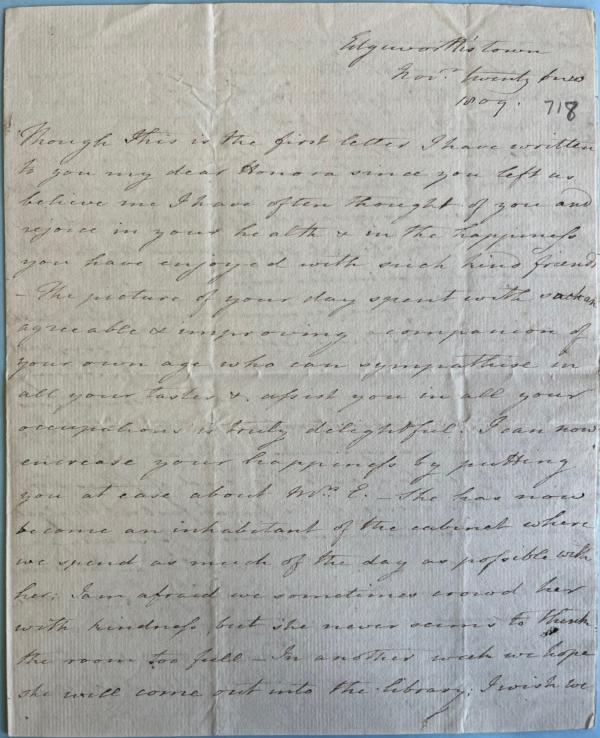 Edgeworthstown
Novr. twenty two
1809. 718
Though this is the first letter I have written
to you my dear Honora since you left us
believe me I have often thought of you and
rejoice in your health & in the happiness
you have enjoyed with such kind friends
– The picture of your day spent with such an
agreeable & improving companion of
your own age who can sympathise in
all your tastes & assist you in all your
occupations is truly delightful. I can now
encrease your happiness by putting
you at ease about Mrs. E. – She has now
become an inhabitant of the cabinet where
we spend as much of the day as possible with
her; I am afraid we sometimes crowd her
with kindness, but she never seems to think
the room too full – In another week we hope
she will come out into the library; I wish we